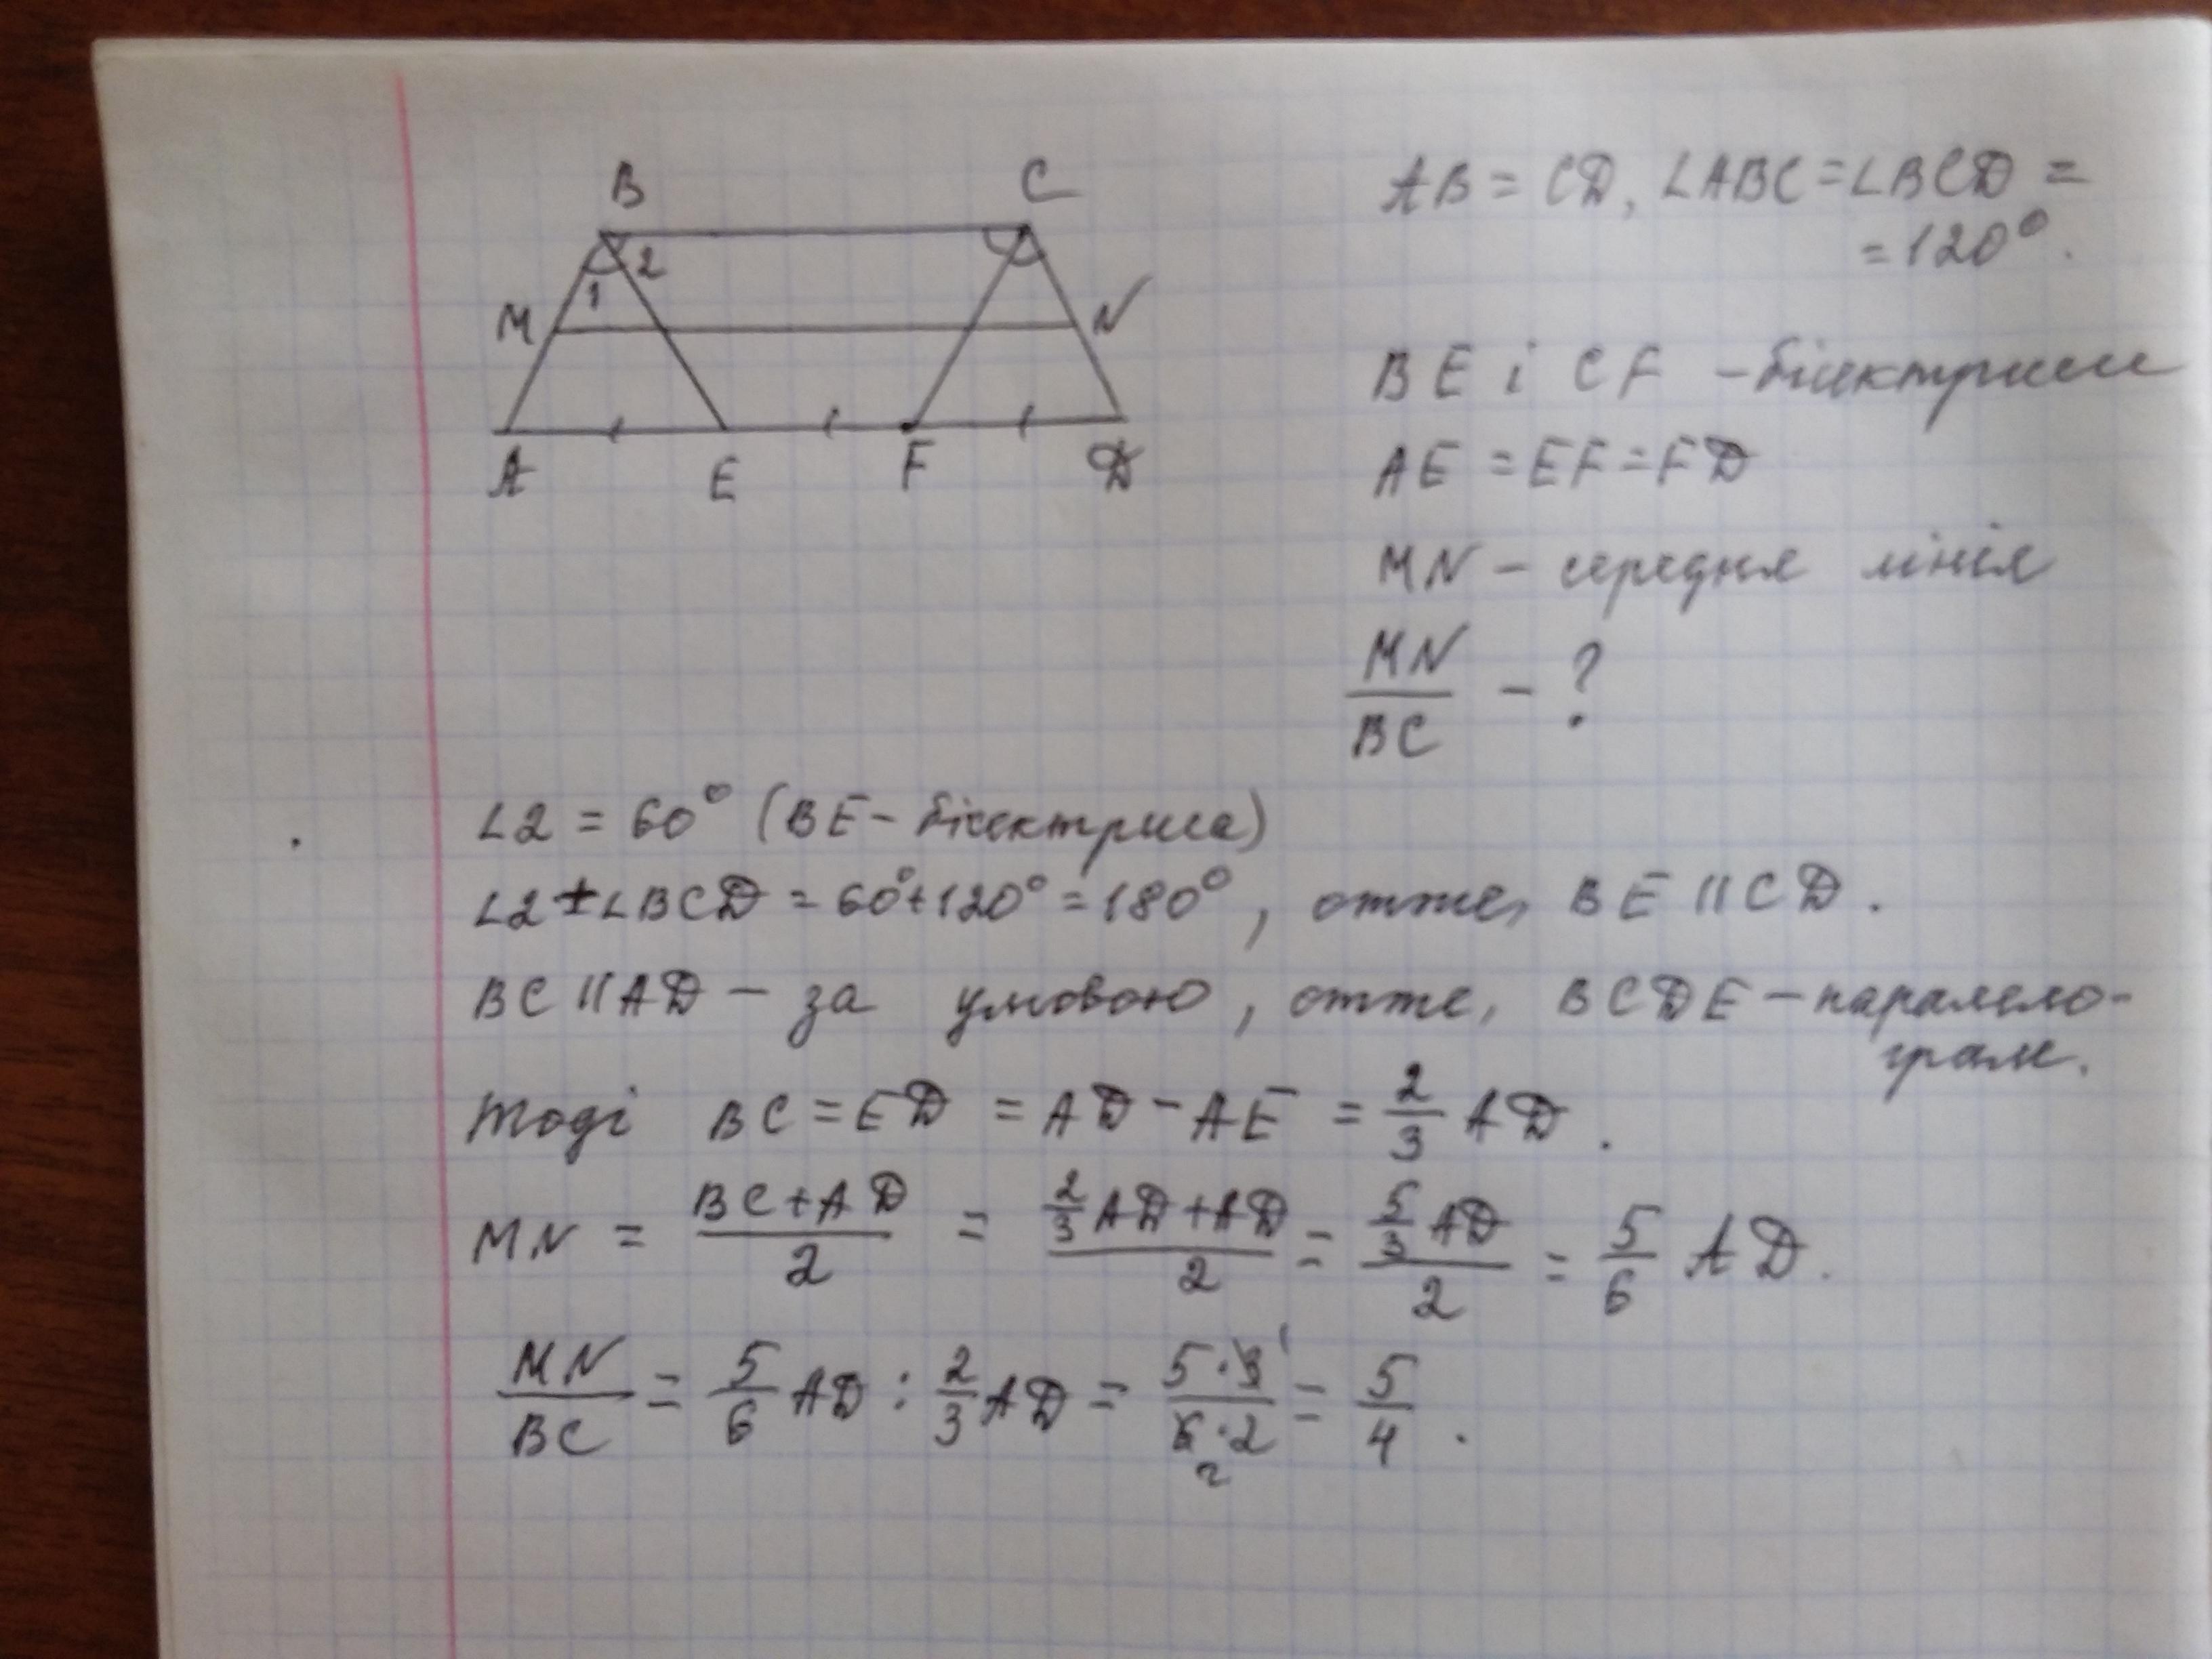 B C
2
1
M N
A E F D
AB = CD, ∠ABC = ∠BCD =
= 120°.
BE і CF – бісектриси
AE = EF = FD
MN – середня лінія
MN/BC – ?
∠2 = 60° (BE – бісектриса)
∠2 + ∠BCD = 60° + 120° = 180°, отже, BE || CD.
BC || AD – за умовою, отже, BCDE – паралело-
грам.
Тоді BC = ED = AD – AE = 2/3 AD.
MN = (BC + AD)/2 = (2/3 AD + AD)/2 = (5/3 AD)/2 = 5/6 AD.
MN/BC = 5/6 AD : 2/3 AD = (5 · 3 1)/(6 2 · 2) = 5/4.